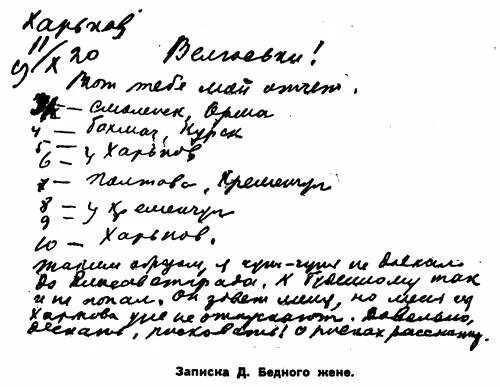 Харьков
11/X 20
9
Велгоевки!
Вот тебе мой отчет.
3/X — Смоленск, Орша
4 — Бахмач, Курск
5 —
6 — у Харьков
7 — Полтава, Кременчуг
8 —
9 = у Кременчуг
10 — Харьков.
Таким образом, я чуть-чуть не доехал
до Елисаветграда. К Буденному так
и не попал. Он зовет меня, но меня из
Харькова уже не отпускают. Довольно,
дескать, рисковать! О рисках расскажу.
Записка Д. Бедного жене.